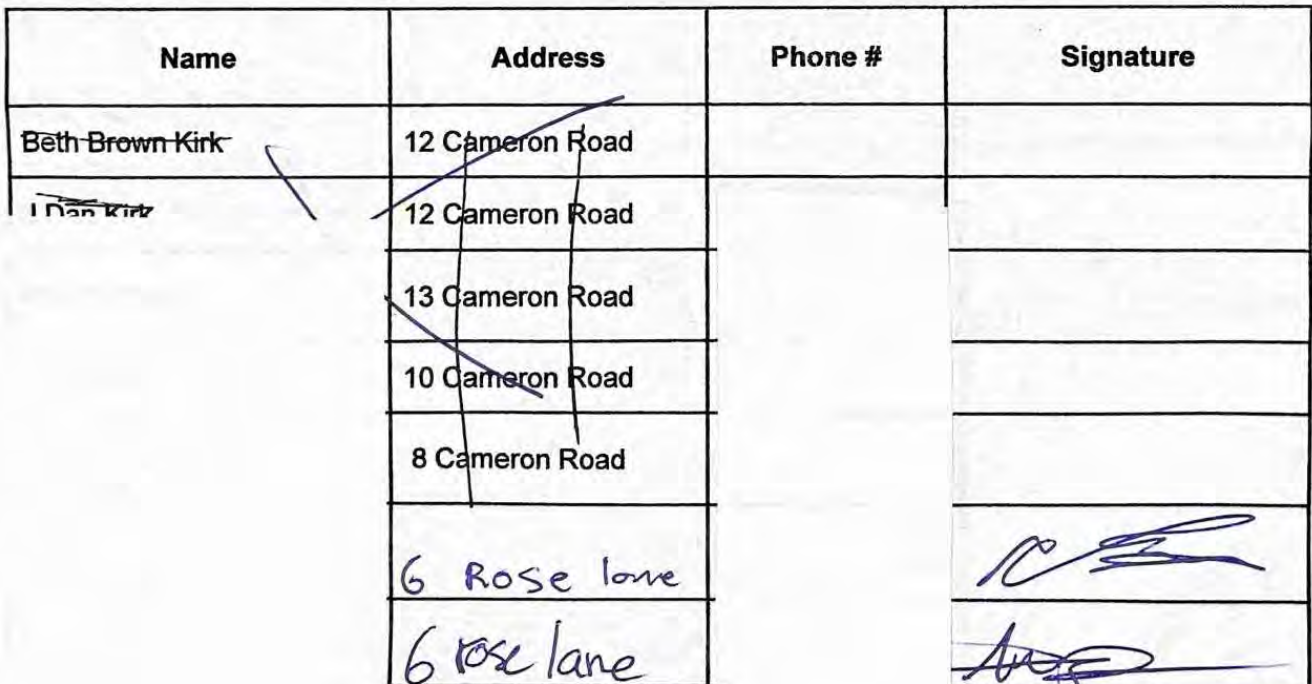 Name Address Phone # Signature
Beth Brown Kirk 12 Cameron Road
J Dan Kirk 12 Cameron Road
13 Cameron Road
10 Cameron Road
8 Cameron Road
6 Rose lane
6 rose lane